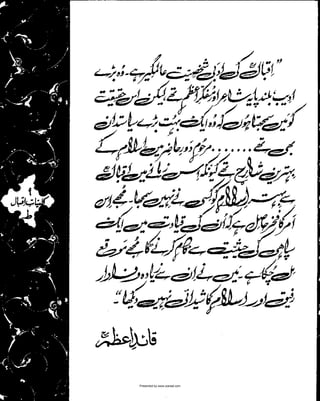 "اقبال کی ادبی شخصیت عالمگیر ہے۔ وہ بڑے
ادیب، بلند پایہ شاعر اور مفکرِ اعظم تھے لیکن اس حقیقت
کو میں سمجھتا ہوں کہ وہ ایک بہت بڑے سیاستدان
بھی تھے ....... مرحوم دورِ حاضر میں اسلام کے
بہترین شارح تھے کیونکہ اس زمانے میں اقبال
سے بہتر اسلام کو کسی نے نہیں سمجھا۔ مجھے اس
امر کا فخر حاصل ہے کہ ان کی قیادت میں ایک
سپاہی کی حیثیت سے کام کرنے کا مجھے موقع
مل چکا ہے۔ میں نے ان سے زیادہ وفادار
رفیق اور اسلام کا شیدائی نہیں دیکھا۔"
قائدِاعظمؒ
کلیاتِ اقبال
Presented by www.iqbalzal.com